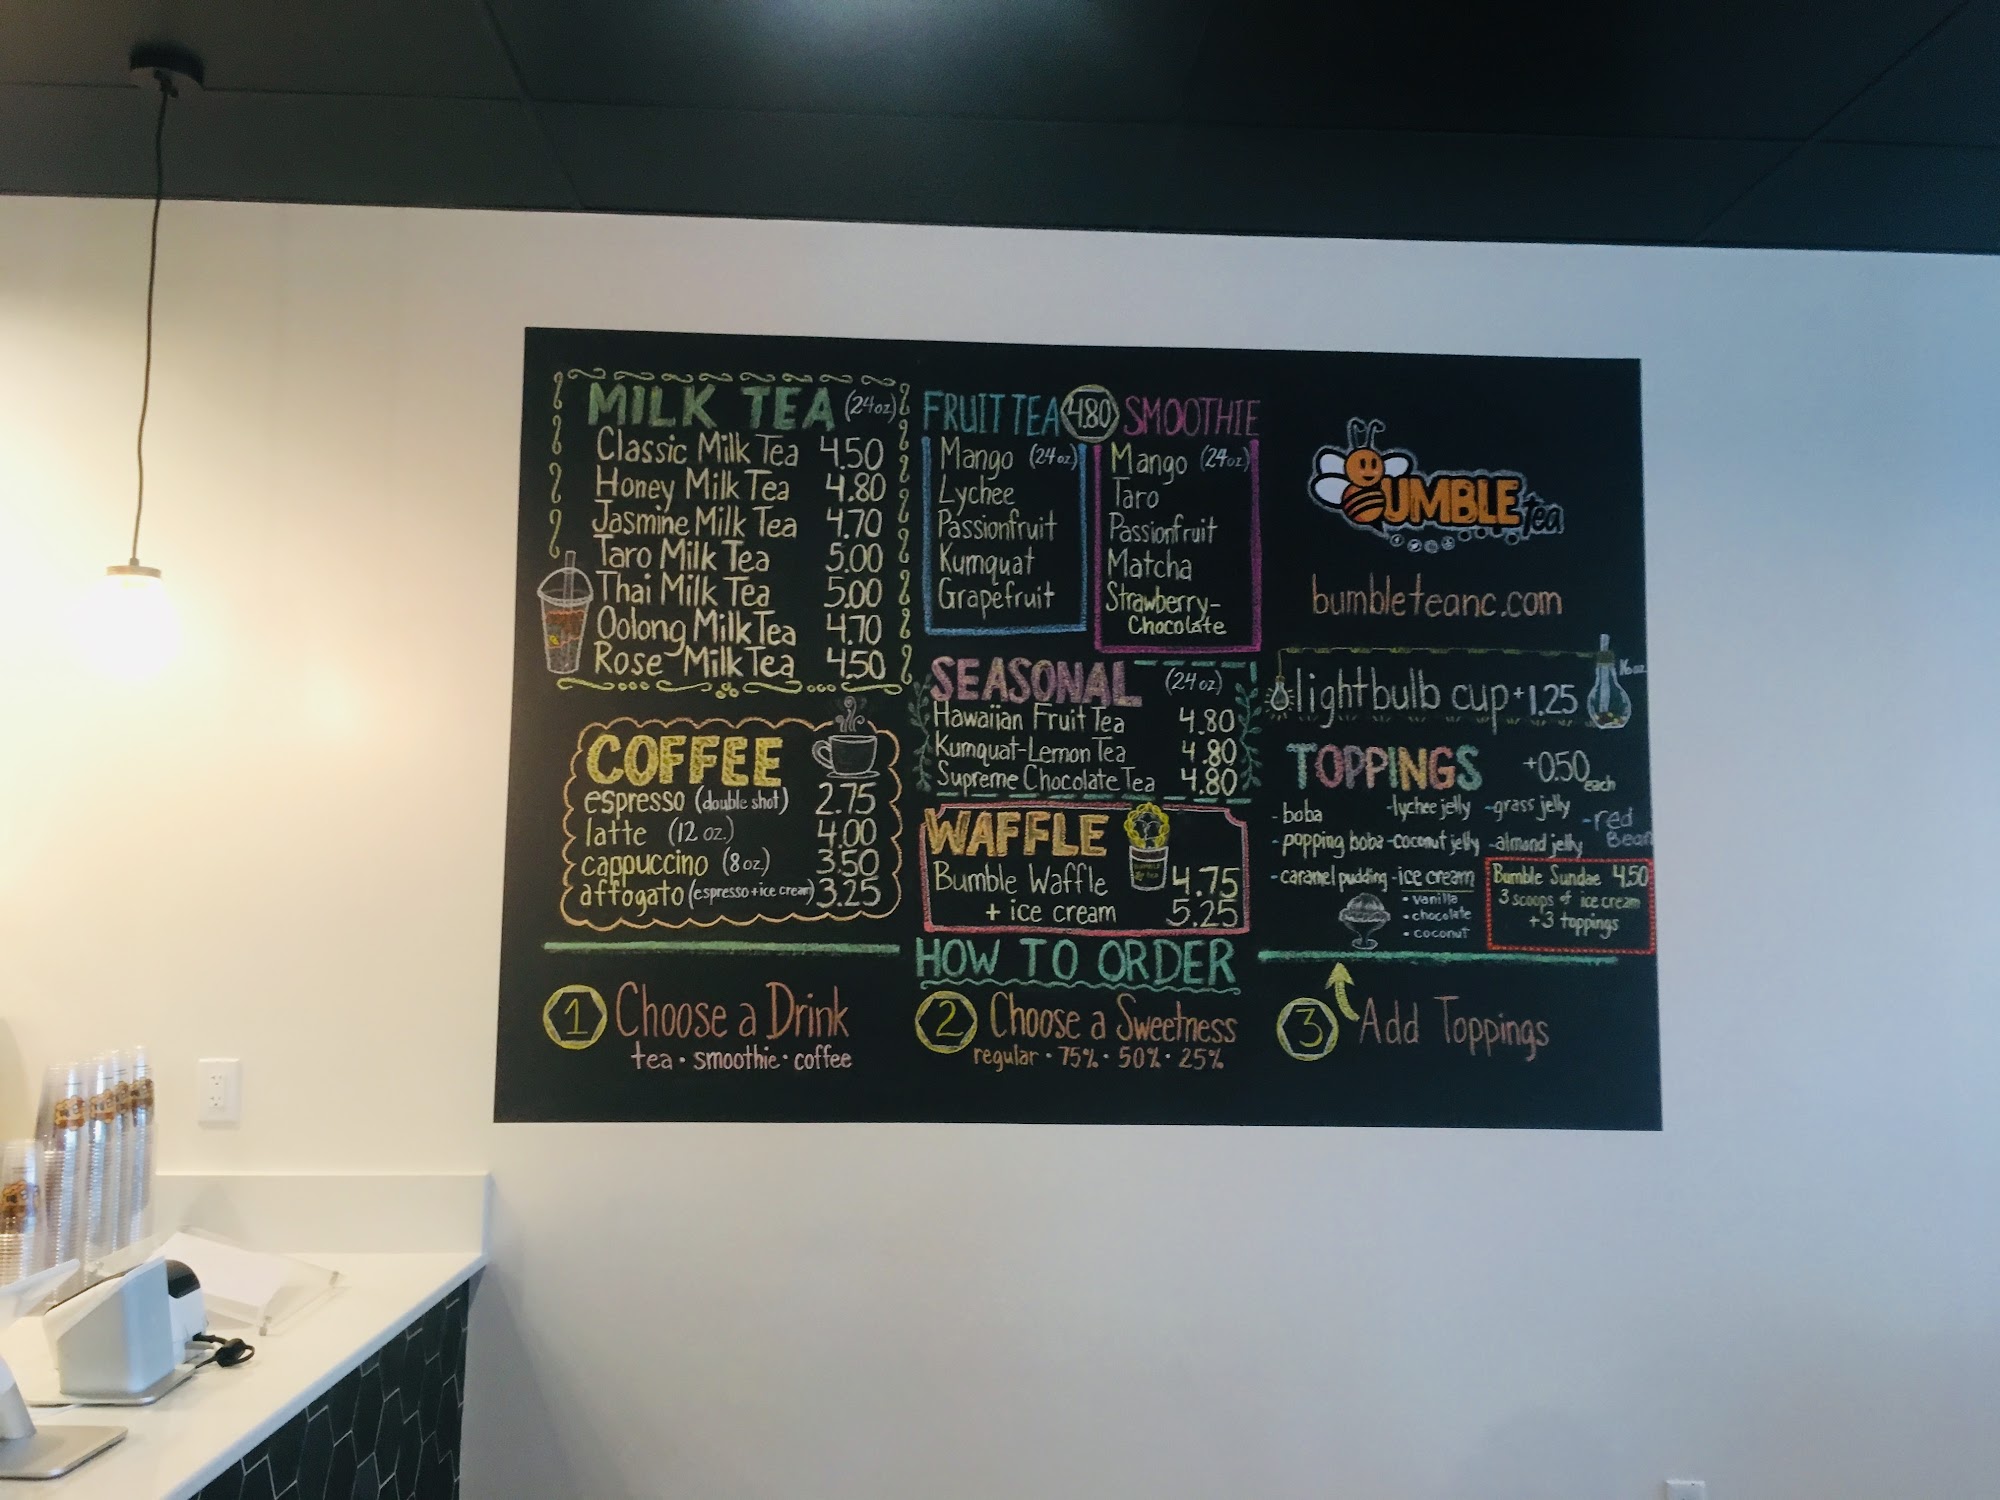 MILK TEA (24oz)
Classic Milk Tea 4.50
Honey Milk Tea 4.80
Jasmine Milk Tea 4.70
Taro Milk Tea 5.00
Thai Milk Tea 5.00
Oolong Milk Tea 4.70
Rose Milk Tea 4.50
COFFEE
espresso (double shot) 2.75
latte (12 oz.) 4.00
cappuccino (8 oz.) 3.50
affogato (espresso + ice cream) 3.25
FRUIT TEA 4.80 SMOOTHIE
Mango (24oz)
Lychee
Passionfruit
Kumquat
Grapefruit
Mango (24oz)
Taro
Passionfruit
Matcha
Strawberry-
Chocolate
SEASONAL (24oz)
Hawaiian Fruit Tea 4.80
Kumquat-Lemon Tea 4.80
Supreme Chocolate Tea 4.80
WAFFLE
Bumble Waffle 4.75
+ ice cream 5.25
BUMBLE tea
bumbleteanc.com
lightbulb cup +1.25 16oz
TOPPINGS +0.50 each
- boba - lychee jelly - grass jelly - red Bean
- popping boba - coconut jelly - almond jelly
- caramel pudding - ice cream
• vanilla
• chocolate
• coconut
Bumble Sundae 4.50
3 scoops of ice cream
+3 toppings
HOW TO ORDER
1 Choose a Drink
tea • smoothie • coffee
2 Choose a Sweetness
regular • 75% • 50% • 25%
3 Add Toppings